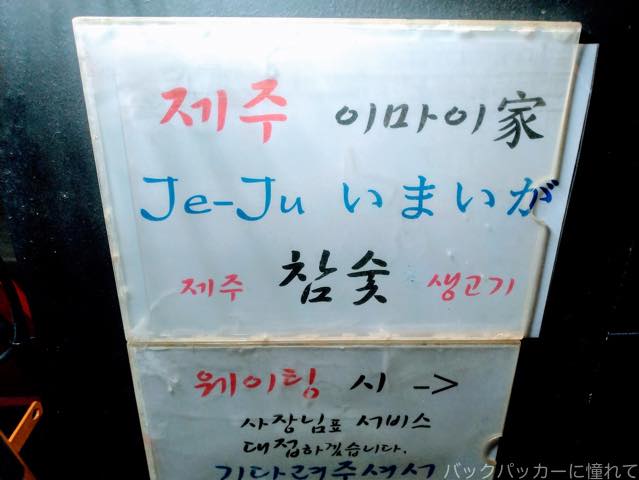 제주 이마이家
Je-Ju いまいが
제주 참숯 생고기
웨이팅 시 ->
사장님표 서비스
대접하겠습니다.
기다려주셔서
バックパッカーに憧れて